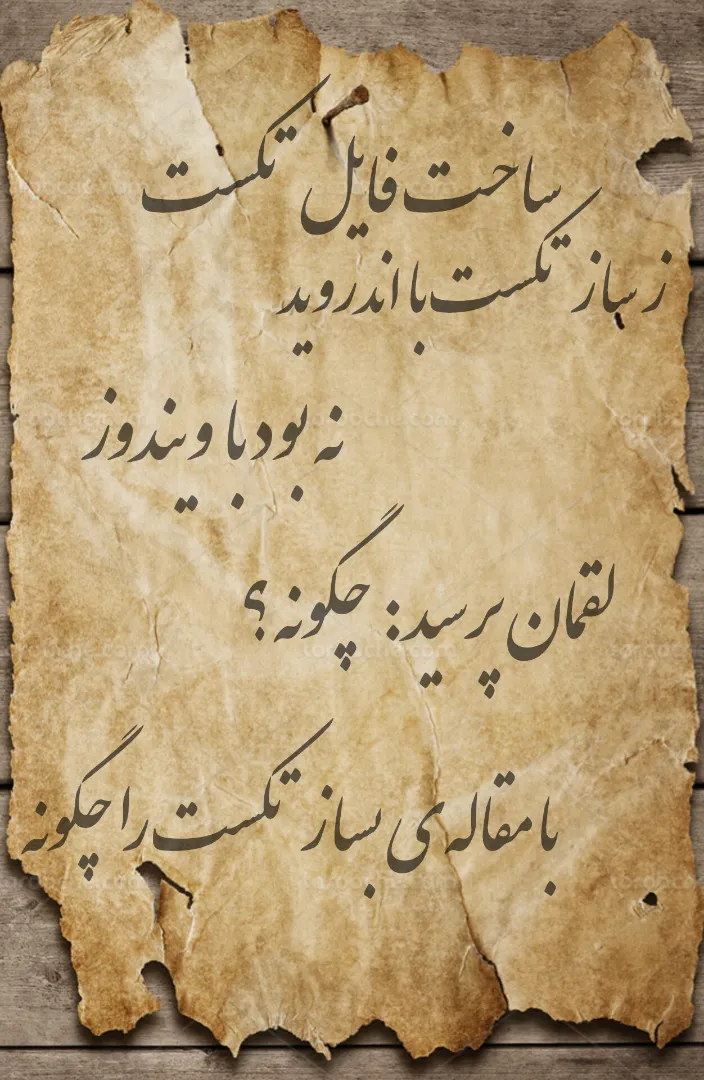 ساخت فایل تکست
ز ساز تکست با اندروید
نه بود با ویندوز
لقمان پرسید: چگونه؟
با مقاله ی بساز تکست را چگونه